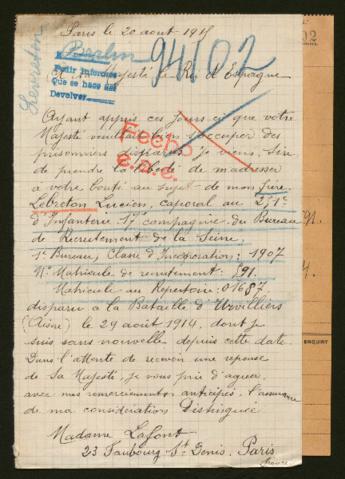 Paris le 20 aout 1915
Berlin
94102
Lebreton
A sa Majesté le Roi d'Espagne
Petit interdit
Que se hace
Devolver
Ayant appris ces jours ci que votre
Majesté voulait bien s'occuper des
prisonniers disparus, je viens, Sire
de prendre la liberté de m'adresser
à votre bonté au sujet de mon frère
Fecho
Lebreton Lucien, caporal au 251e
d'Infanterie 17e compagnie du Bureau
de Recrutement de la Seine
1er Bureau, Classe d'Incorporation: 1907
No Matricule de recrutement: 891.
Matricule au Repertoire: 01687
disparu à la Bataille d'Urvilliers
(Aisne) le 29 août 1914, dont je
suis sans nouvelle depuis cette date.
Dans l'attente de recevoir une reponse
de Sa Majesté, je vous prie d'agréer
avec mes remerciements anticipés, l'assurance
de ma considération Distinguée
Madame Lafont
23 Faubourg St Denis, Paris
France